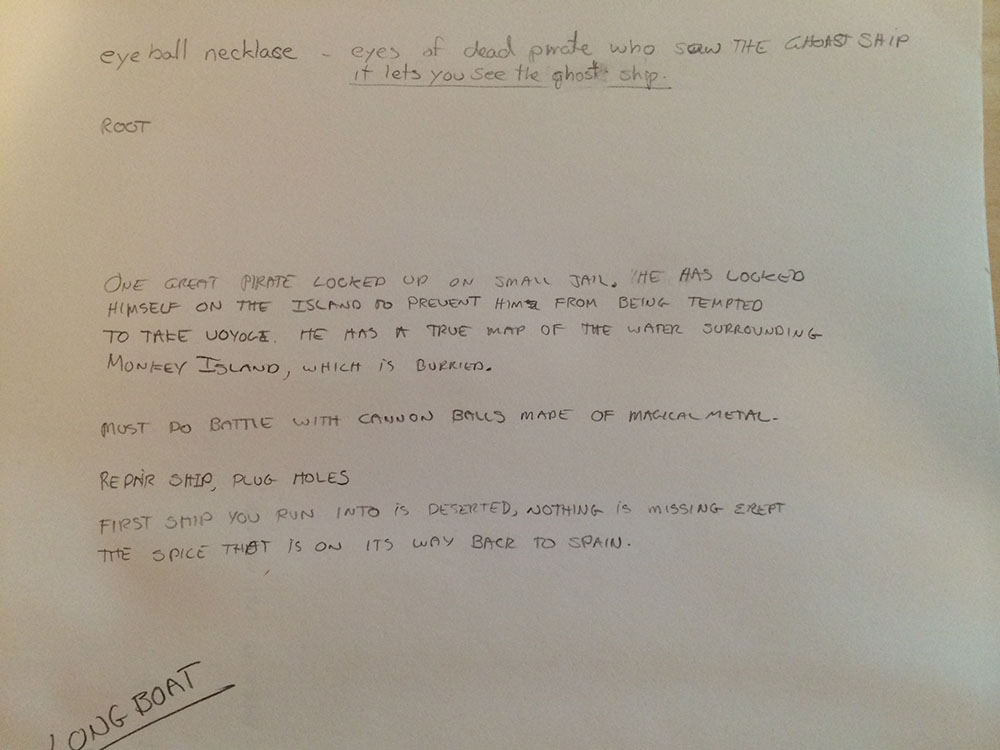 eyeball necklase - eyes of dead pirate who saw THE GHOAST SHIP
it lets you see the ghost ship.
ROOT
ONE GREAT PIRATE LOCKED UP ON SMALL JAIL. HE HAS LOCKED
HIMSELF ON THE ISLAND TO PREVENT HIM FROM BEING TEMPTED
TO TAKE VOYGE. HE HAS A TRUE MAP OF THE WATER SURROUNDING
MONKEY ISLAND, WHICH IS BURRIED.
MUST DO BATTLE WITH CANNON BALLS MADE OF MAGICAL METAL.
REPAIR SHIP, PLUG HOLES
FIRST SHIP YOU RUN INTO IS DESERTED, NOTHING IS MISSING EXEPT
THE SPICE THAT IS ON ITS WAY BACK TO SPAIN.
LONG BOAT